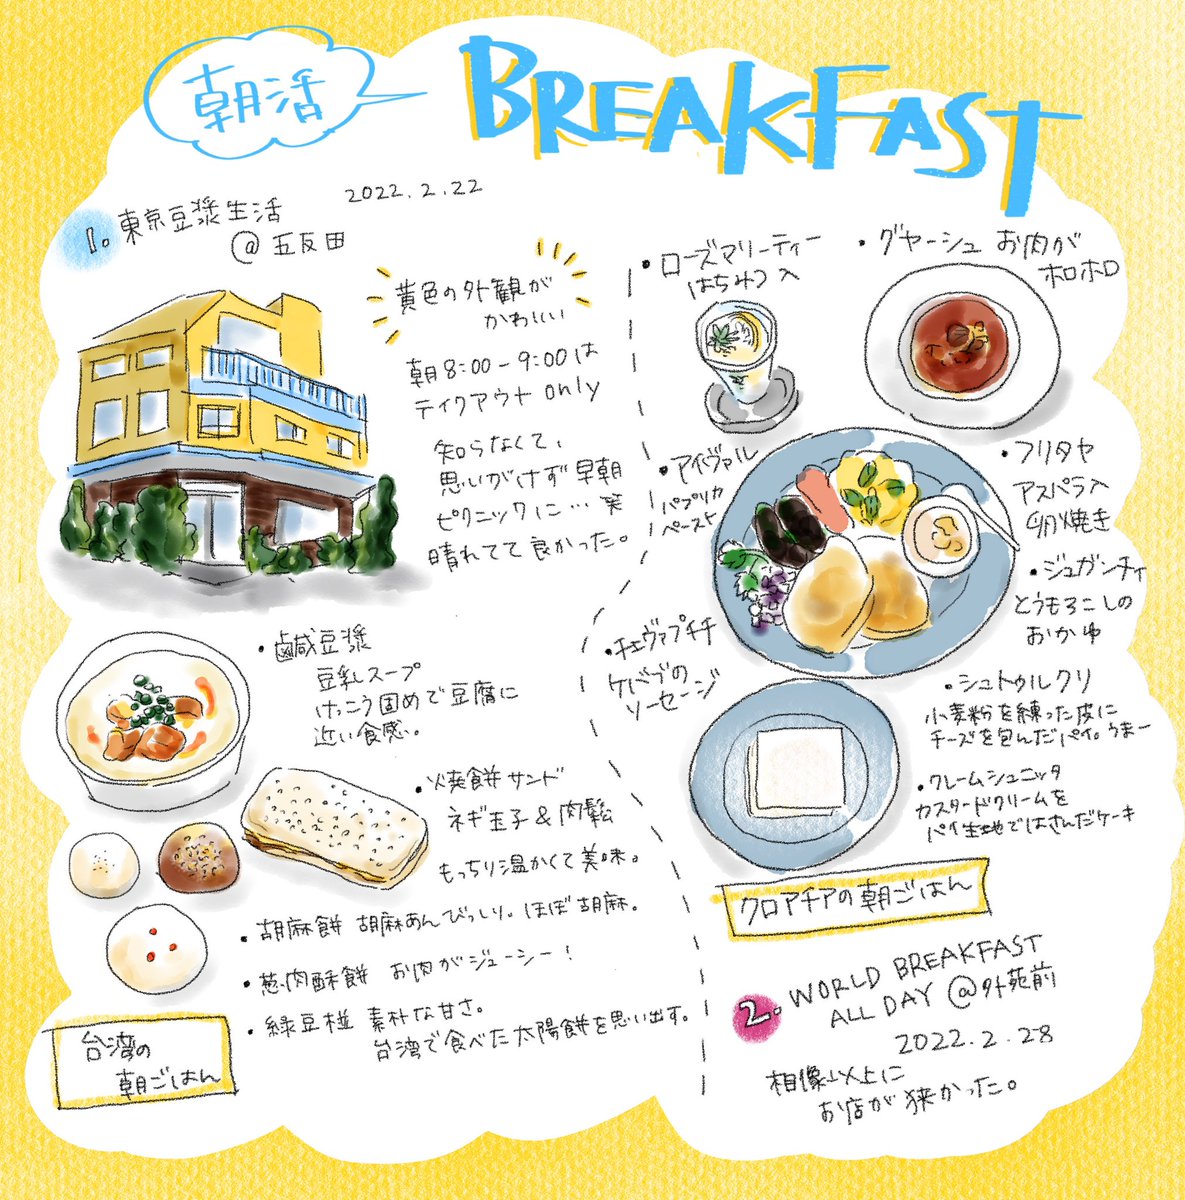 朝活
BREAKFAST
2022.2.22
1. 東京豆漿生活
@五反田
黄色の外観が
かわいい
朝8:00-9:00は
テイクアウトonly
知らなくて、
思いがけず早朝
ピクニックに…笑
晴れてて良かった。
・鹹豆漿
豆乳スープ
けっこう固めで豆腐に
近い食感。
・焼餅サンド
ネギ玉子&肉鬆
もっちり温かくて美味。
・胡麻餅 胡麻あんびっしり。ほぼ胡麻。
・葱肉酥餅 お肉がジューシー!
・緑豆椪 素朴な甘さ。
台湾で食べた太陽餅を思い出す。
台湾の
朝ごはん
・ローズマリーティー
はちみつ入
・グヤーシュ お肉が
ホロホロ
・アイヴァル
パプリカ
ペースト
・フリタヤ
アスパラ入
卵焼き
・ジュガンチィ
とうもろこしの
おかゆ
・チェヴァプチチ
ケバブの
ソーセージ
・シュトゥルクリ
小麦粉を練った皮に
チーズを包んだパイ。うまー
・クレームシュニッタ
カスタードクリームを
パイ生地ではさんだケーキ
クロアチアの朝ごはん
2. WORLD BREAKFAST
ALL DAY @外苑前
2022.2.28
想像以上に
お店が狭かった。